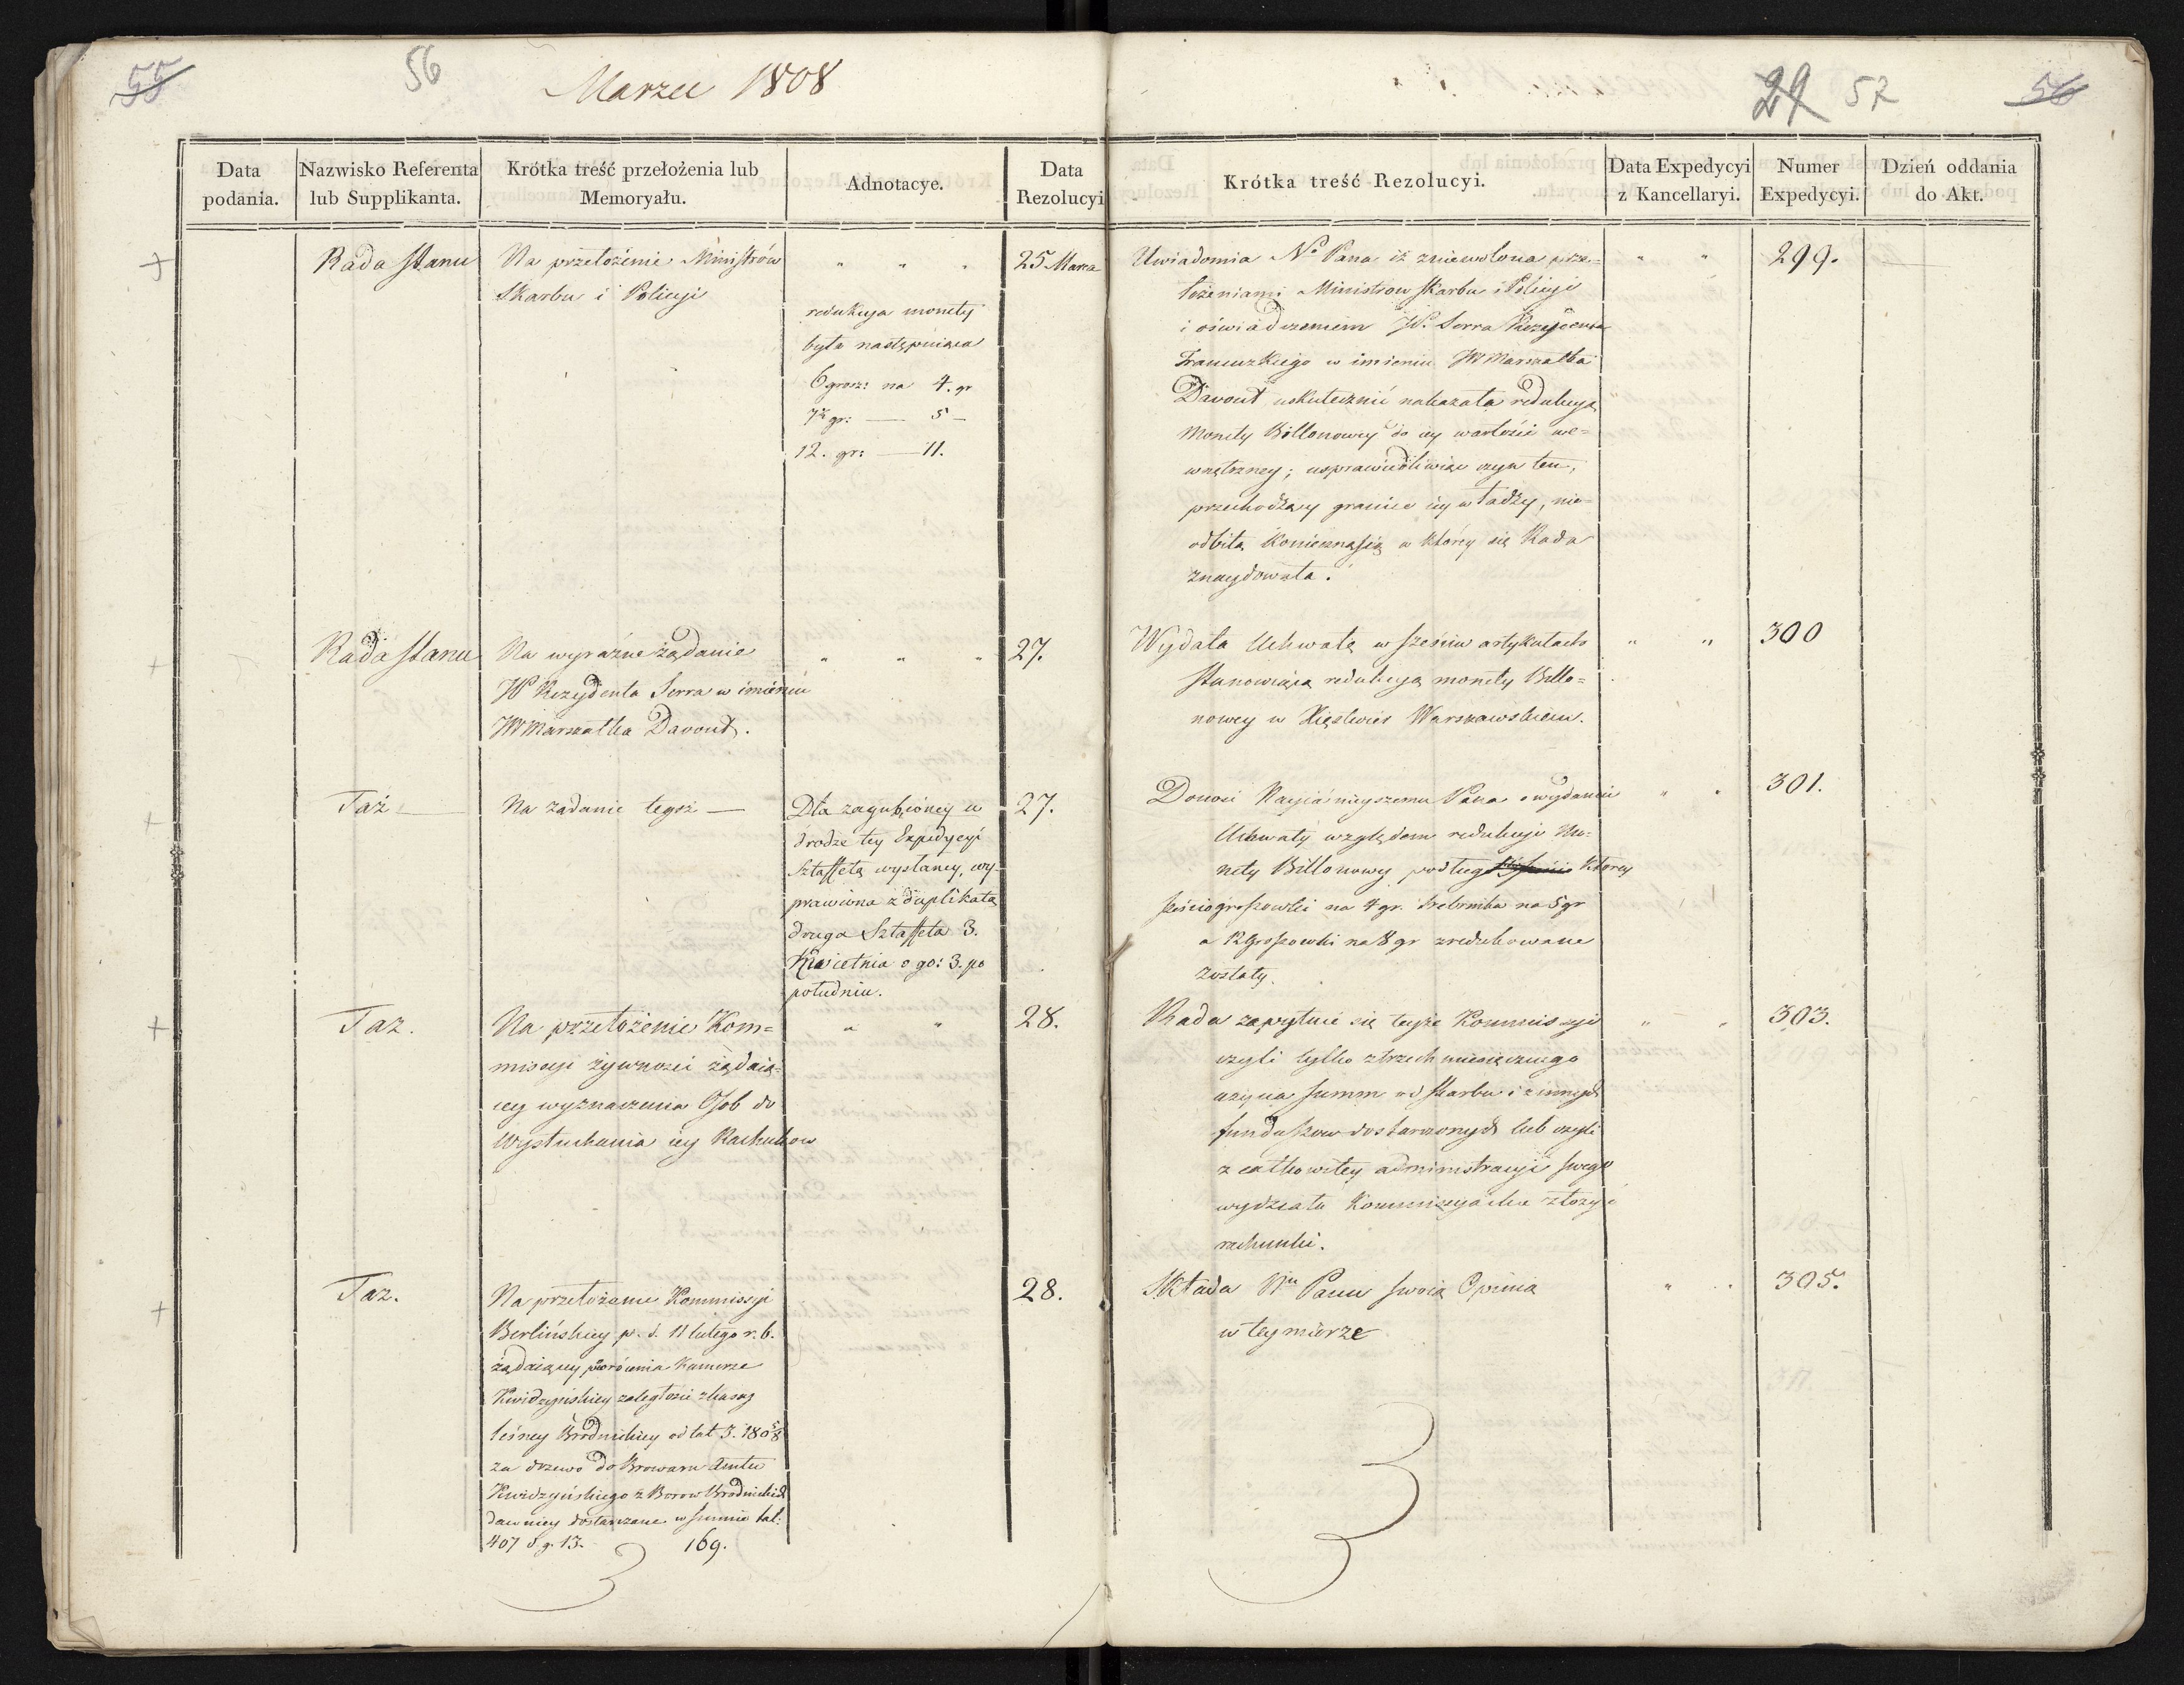 55
56
Marzec 1808
29 57
56
Data podania.
Nazwisko Referenta lub Supplikanta.
Krótka treść przełożenia lub Memoryału.
Adnotacye.
Data Rezolucyi
Krótka treść Rezolucyi.
Data Expedycyi z Kancellaryi.
Numer Expedycyi.
Dzień oddania do Akt.
+
Rada Stanu
Na przełożenie Ministrów
Skarbu i Policyi
" " "
redukcya monety
była następuiąca
6 grosz: na 4. gr
gr: — 5 —
12. gr: — 11.
25 Marca
Uwiadomia N° Pana iż zniewolona prze=
łożeniami Ministrow Skarbu i Policyi
i oświadczeniem W. Serra Rezydenta
Francuzkiego w imieniu JW Marszałka
Davout uskutecznić nakazała redukcyą
Monety Billonowey do iey wartości we=
wnętrzney; usprawiedliwiąc czyn ten,
przechodzący granice iey władzy, nie=
odbitą koniecznością w którey się Rada
znaydowała.
" "
299.
+
Rada Stanu
Na wyraźne żądanie
W Rezydenta Serra w imieniu
JW Marszałka Davout.
" " "
27.
Wydała Uchwałę w sześciu artykułach
stanowiącą redukcyą monety Billo=
nowey w Xięstwie Warszawskiem.
" "
300
+
Taż —
Na żądanie tegoż —
Dla zagubioney w
drodze tey Expedycyi
Sztaffetą wysłaney, wy=
prawiona z duplikatą
druga Sztaffeta 3.
Kwietnia o go: 3. po
południu.
27.
Donosi Nayiaśnieyszemu Panu o wydaniu
Uchwały względem redukcyi Mo=
nety Billonowey podług którey
sześciogroszowki na 4 gr. srebrnika na 5 gr
a 12 groszowki na 8 gr zredukowane
zostały.
" "
301.
+
Taz.
Na przełożenie Kom=
missyi żywności żądaią=
cey wyznaczenia Osob do
Wysłuchania iey Rachunkow
" "
28.
Rada zapytuie się teyże Kommissyi
czyli tylko z trzech miesięcznego
użycia summ od Skarbu i z innych
funduszow dostarczonych lub czyli
z całkowitey administracyi swego
wydziału Kommissya chce złożyć
rachunki.
" "
303.
+
Taz.
Na przełożenie Kommissyi
Berlińskiey p. d. 11 lutego r. b.
żądaiącey powrócenia Kamerze
Kwidzyńskiey zaległości z kassy
leśney Brodnickiey od lat 3. 180 5/8
za drzewo do Browaru Amtu
Kwidzyńskiego z Borow Brodnickich
dawniey dostarczane w summie tal:
407 d. g. 13. 169.
28.
Składa Nmu Panu swoią Opinią
w tey mierze
" "
305.